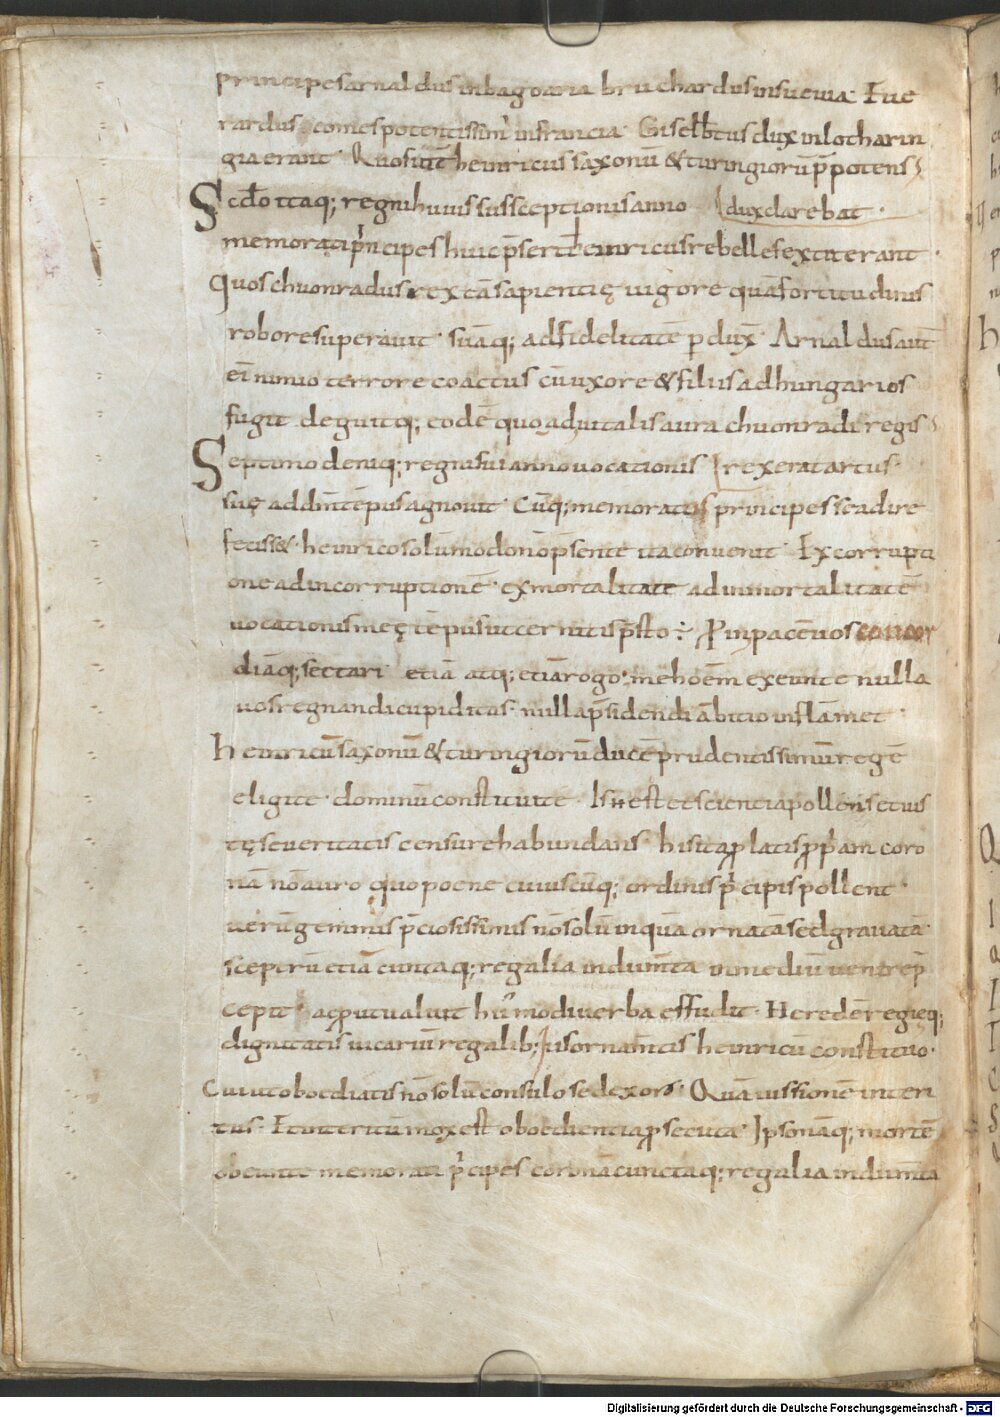 principes arnaldus in bagoaria bruchardus in suevia. Eve
rardus. comes potentissim' in francia. Gisełbtus dux in lotharin
gia erant. Quos int̄ heinricus saxonū & turingiorū p̄potens
Scd̄o itaq; regni huius susceptionis anno dux clarebat.
memorati p'ncipes huic p̄sertī heinricus rebelles extiterant.
Quos chuonradus rex tā sapientię vigore quā fortitudinis
robore superavit. suāq; ad fidelitatē pdux̄. Arnaldus aut̄
ei' nimio terrore coactus cū uxore & filiis ad hungarios
fugit. deguitq; eodē quo ad vitalis aura chuonradi regis
Septimo deniq; regni sui anno vocationis rexerat artus.
suę ad dn̄m tēpus agnovit. Cūq; memoratos principes se adire
fecisset. heinrico solūmodo nō p̄sente ita convenit. Ex corrupti
one ad incorruptionē. ex mortalitate ad inmortalitatē
vocationis meę tēpus ut cernitis p̄sto ÷ Proin pacē vos concor
diāq; sectari etiā atq; etiā rogo. me hoēm exeunte nulla
vos regnandi cupiditas. nulla p̄sidendi ābitio inflāmet.
heinricū saxonū & turingiorū ducē prudentissimū regē
eligite. dominū constituite. Is n̄ est et scientia pollens et ius
tę severitatis censure habundans. his ita platis ppiam coro
nā nō auro quo poene cuiuscūq; ordinis p'cipis pollent.
verū gemmis p̄ciosissimis nō solū inquā ornatā sed gravatā.
sceptrū etiā cunctaq; regalia indumta in mediū venire p̄
cepit. ac put valuit hui'modi verba effudit. Heredē regięq;
dignitatis vicariū regalib; ius ornamtis heinricū constituo.
Cui ut oboediatis nō solū consulo sed exoro. Quā iussionē interi
tus. Et interitū mox est oboedientia psecuta. Ipso nāq; mortē
obeunte memorati p'cipes coronā cunctaq; regalia indumta